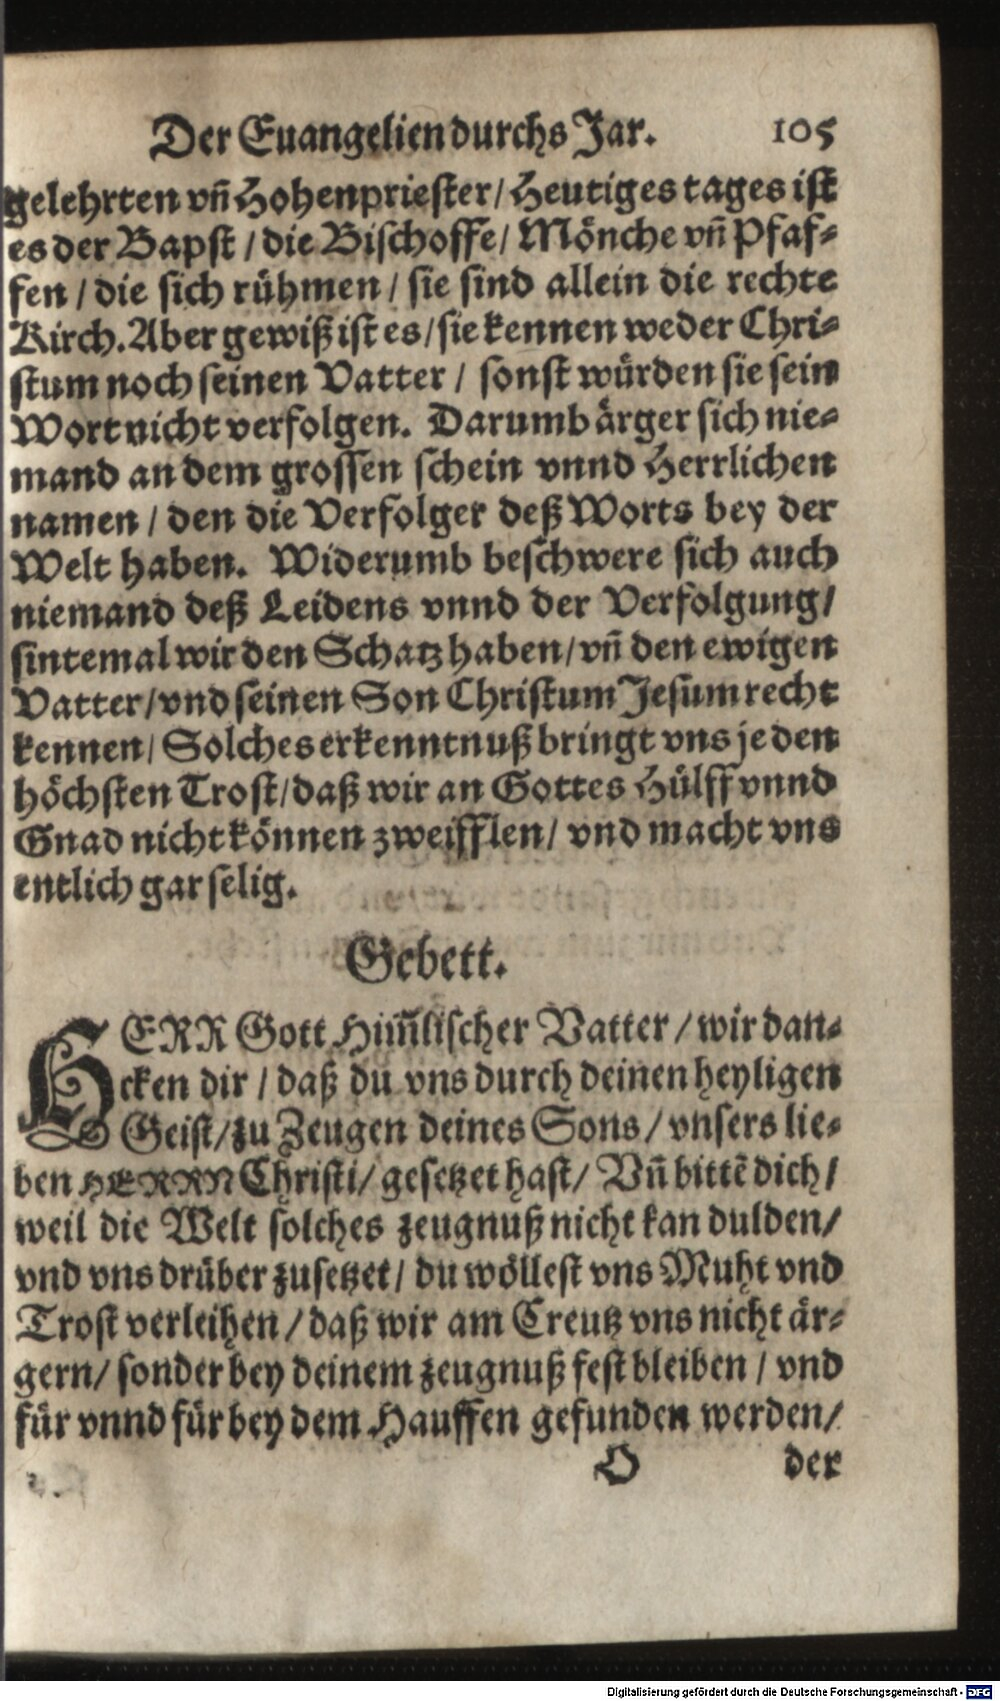 Der Euangelien durchs Jar. 105
gelehrten vñ Hohenpriester/ Heutiges tages ist
es der Bapst / die Bischoffe/ Mönche vñ Pfaf-
fen / die sich rühmen / sie sind allein die rechte
Kirch. Aber gewiß ist es/ sie kennen weder Chri-
stum noch seinen Vatter / sonst würden sie sein
Wort nicht verfolgen. Darumb ärger sich nie-
mand an dem grossen schein vnnd Herrlichen
namen / den die Verfolger deß Worts bey der
Welt haben. Widerumb beschwere sich auch
niemand deß Leidens vnnd der Verfolgung/
sintemal wir den Schatz haben/ vñ den ewigen
Vatter/ vnd seinen Son Christum Jesum recht
kennen/ Solches erkenntnuß bringt vns je den
höchsten Trost/ daß wir an Gottes Hülff vnnd
Gnad nicht können zweifflen/ vnd macht vns
entlich gar selig.
Gebett.
HERR Gott Him̃lischer Vatter / wir dan-
cken dir / daß du vns durch deinen heyligen
Geist/ zu Zeugen deines Sons / vnsers lie-
ben HERRN Christi/ gesetzet hast/ Vñ bittẽ dich/
weil die Welt solches zeugnuß nicht kan dulden/
vnd vns drüber zusetzet / du wöllest vns Muht vnd
Trost verleihen / daß wir am Creutz vns nicht är-
gern/ sonder bey deinem zeugnuß fest bleiben / vnd
für vnnd für bey dem Hauffen gefunden werden/
O der
Digitalisierung gefördert durch die Deutsche Forschungsgemeinschaft - DFG